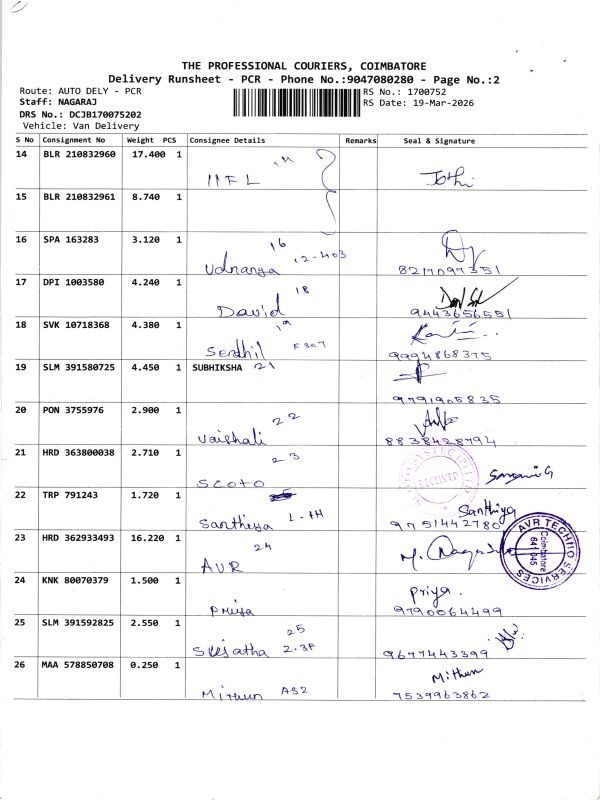 THE PROFESSIONAL COURIERS, COIMBATORE
Delivery Runsheet - PCR - Phone No.:9047080280 - Page No.:2
Route: AUTO DELY - PCR
RS No.: 1700752
Staff: NAGARAJ
RS Date: 19-Mar-2026
DRS No.: DCJB170075202
Vehicle: Van Delivery
S No Consignment No Weight PCS Consignee Details Remarks Seal & Signature
14 BLR 210832960 17.400 1 IIFL Jothi
15 BLR 210832961 8.740 1
16 SPA 163283 3.120 1 16 12-403
Udnanya 8217097351
17 DPI 1003580 4.240 1 18
David 9443656551
18 SVK 10718368 4.380 1 19
Sendhil F307 9994868375
19 SLM 391580725 4.450 1 SUBHIKSHA 21
9791905835
20 PON 3755976 2.900 1 22
Vaishali 8838428794
21 HRD 363800038 2.710 1 23
Scoto RECEIVED
22 TRP 791243 1.720 1 Santhiya
Santhiya L-1H 9751442780
23 HRD 362933493 16.220 1 24
AVR AVR TECHNO SERVICES Coimbatore 641 045
24 KNK 80070379 1.500 1 Priya
Priya 9790064499
25 SLM 391592825 2.550 1 25
Sujatha 2.3F 9677443399
26 MAA 578850708 0.250 1 Mithun
Mithun AS2 7539963862